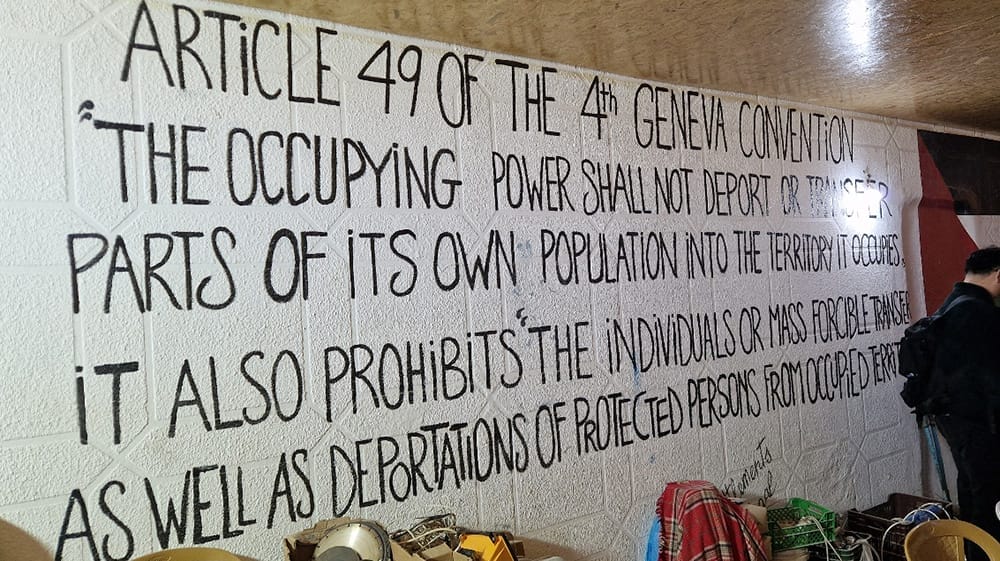 ARTiCLE 49 OF THE 4th GENEVA CONVENTiON
"THE OCCUPYiNG POWER SHALL NOT DEPORT OR TRANSFER
PARTS OF iTS OWN POPULATION INTO THE TERRITORY IT OCCUPIES,
iT ALSO PROHiBiTS "THE iNDiViDUALS OR MASS FORCIBLE
AS WELL AS DEPORTATiONS OF PROTECTED PERSONS FROM OCCUPiED